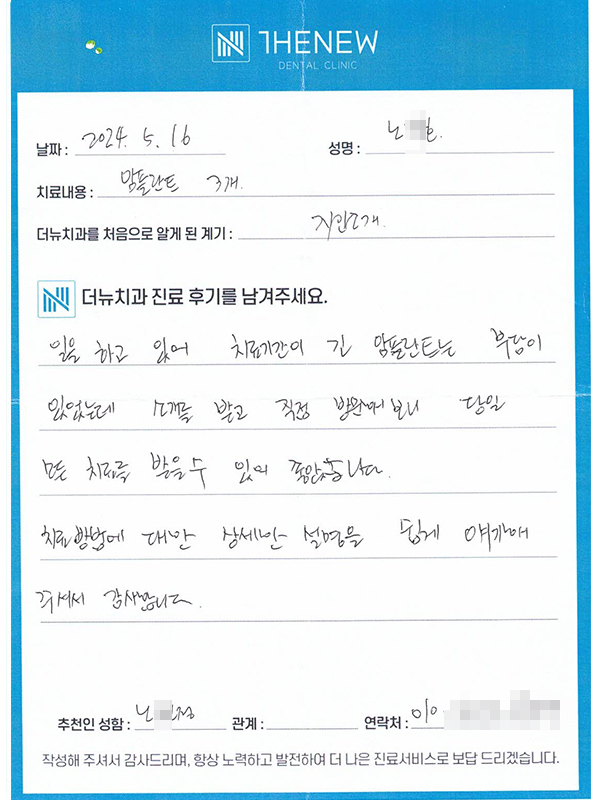 THENEW
DENTAL CLINIC
날짜 : 2024. 5. 16 성명 : 노 호.
치료내용 : 임플란트 3개.
더뉴치과를 처음으로 알게 된 계기 : 지인소개.
더뉴치과 진료 후기를 남겨주세요.
일을 하고 있어 치료기간이 긴 임플란트는 부담이
있었는데 소개를 받고 직접 방문해보니 당일
모든 치료를 받을 수 있어 좋았습니다.
치료방법에 대한 상세한 설명을 쉽게 얘기해
주셔서 감사합니다.
추천인 성함 : 노 정 관계 : 연락처 : 010
작성해 주셔서 감사드리며, 항상 노력하고 발전하여 더 나은 진료서비스로 보답 드리겠습니다.